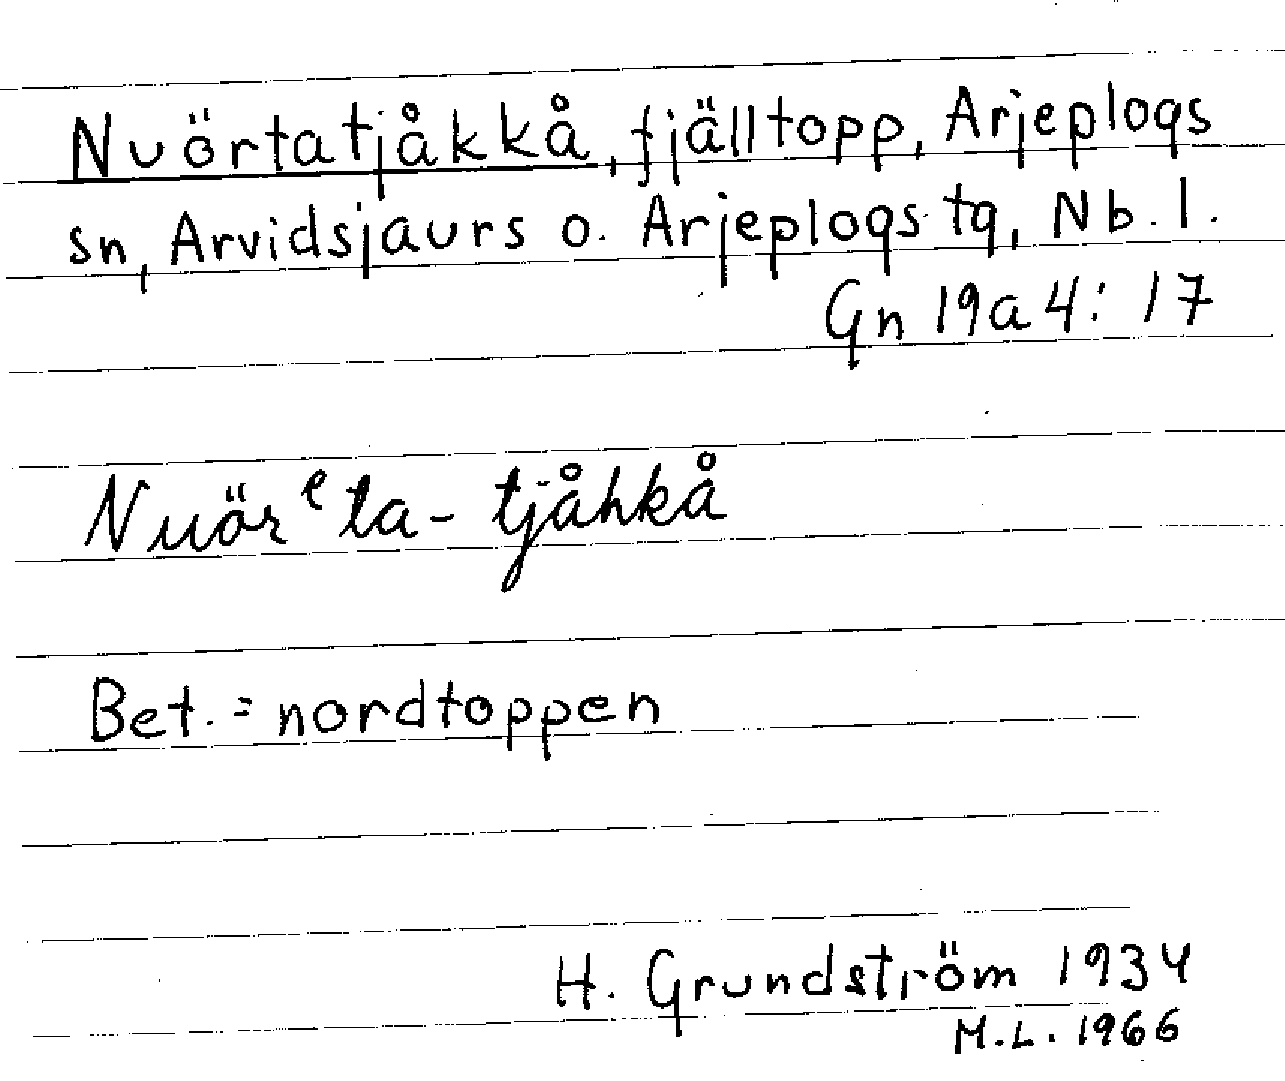 Nuörtatjåkkå, fjälltopp, Arjeplogs
sn, Arvidsjaurs o. Arjeplogs tg, Nb. l.
Gn 19a4: 17
Nuörᵉta-tjåhkå
Bet. = nordtoppen
H. Grundström 1934
M.L. 1966